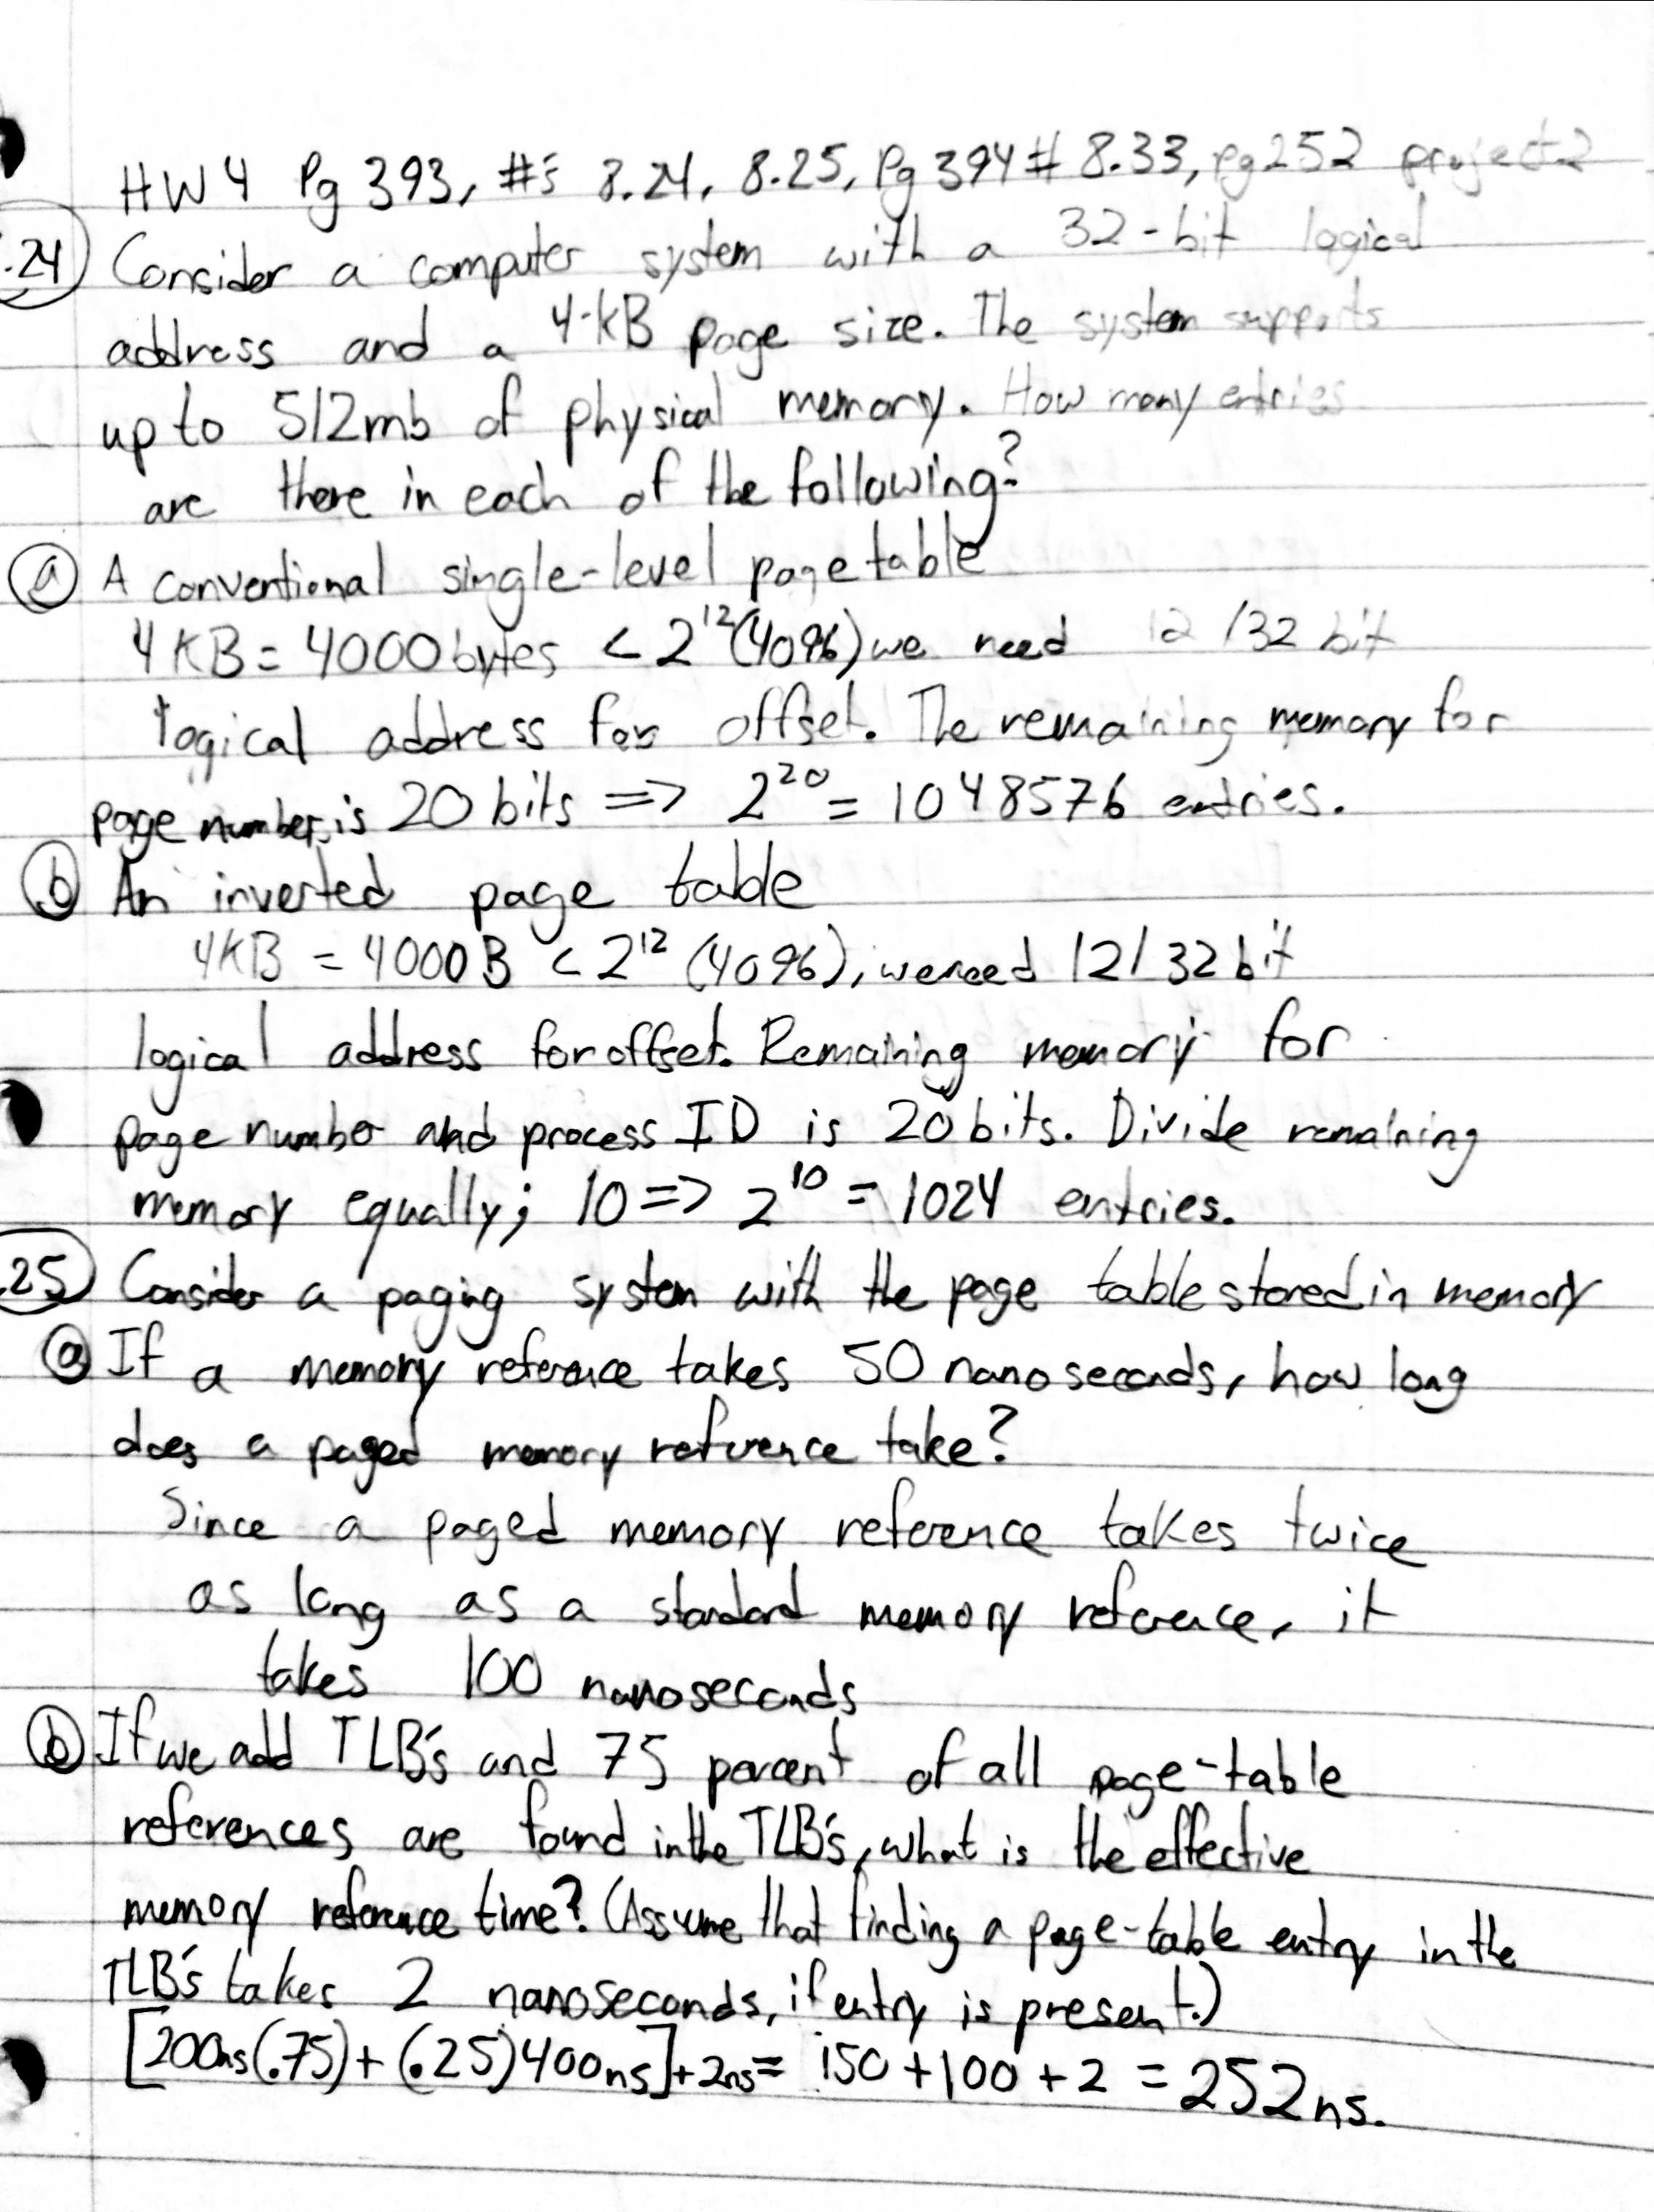 HW 4 Pg 393, #'s 8.24, 8.25, Pg 394 # 8.33, pg 252 project 2
.24 Consider a computer system with a 32-bit logical
address and a 4-kB page size. The system supports
up to 512mb of physical memory. How many entries
are there in each of the following?
a A conventional single-level page table
4 KB = 4000 bytes < 2^12 (4096) we need 12 /32 bit
logical address for offset. The remaining memory for
page number is 20 bits => 2^20 = 1048576 entries.
b An inverted page table
4KB = 4000 B < 2^12 (4096), we need 12/32 bit
logical address for offset. Remaining memory for
page number and process ID is 20 bits. Divide remaining
memory equally; 10 => 2^10 = 1024 entries.
.25 Consider a paging system with the page table stored in memory
a If a memory reference takes 50 nanoseconds, how long
does a paged memory reference take?
Since a paged memory reference takes twice
as long as a standard memory reference, it
takes 100 nanoseconds
b If we add TLB's and 75 percent of all page-table
references are found in the TLB's, what is the effective
memory reference time? (Assume that finding a page-table entry in the
TLB's takes 2 nanoseconds, if entry is present.)
[200ns(.75) + (.25)400ns] + 2ns = 150 + 100 + 2 = 252ns.